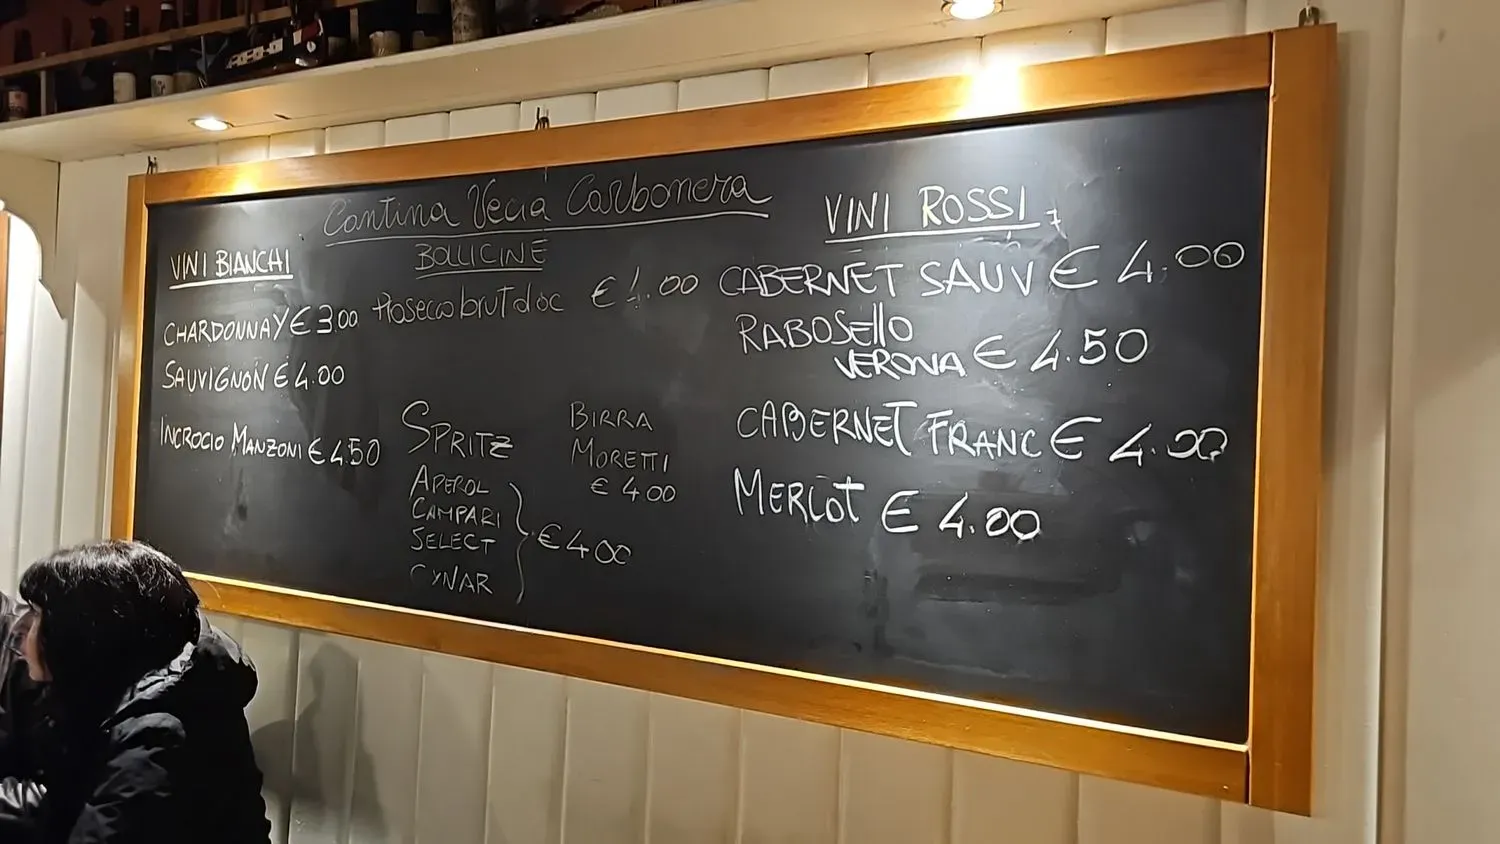 Cantina Vecia Carbonera
VINI BIANCHI
CHARDONNAY € 3.00
SAUVIGNON € 4.00
INCROCIO MANZONI € 4.50
BOLLICINE
Prosecco brut doc € 4.00
SPRITZ
APEROL
CAMPARI
SELECT
CYNAR
€ 4.00
BIRRA
MORETTI
€ 4.00
VINI ROSSI
CABERNET SAUV € 4.00
RABOSELLO
VERONA € 4.50
CABERNET FRANC € 4.00
MERLOT € 4.00